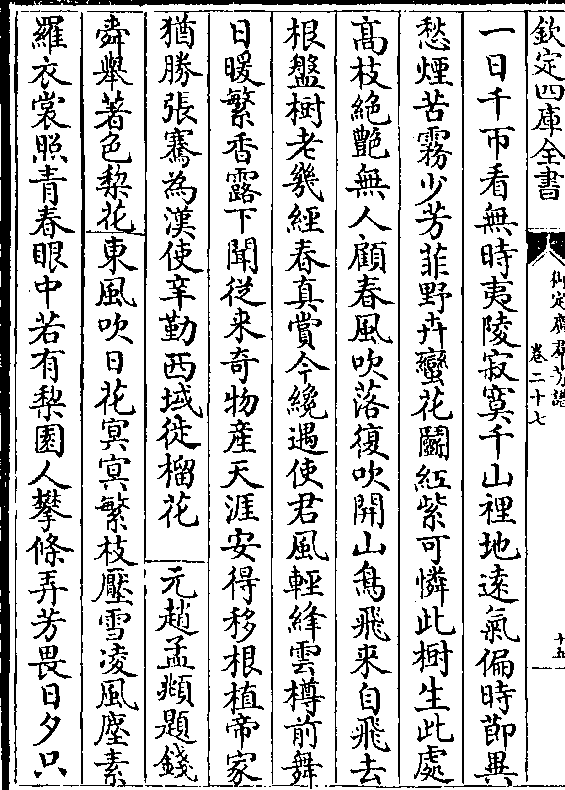 欽定四庫全書
御定廣羣芳譜
卷二十七
十五
一日千帀看無時夷陵寂寞千山裡地遠氣偏時節異
愁煙苦霧少芳菲野卉蠻花鬭紅紫可憐此樹生此處
高枝絶艷無人顧春風吹落復吹開山鳥飛来自飛去
根盤樹老幾經春真賞今纔遇使君風輕絳雲樽前舞
日暖繁香露下聞從来奇物産天涯安得移根植帝家
猶勝張騫為漢使辛勤西域徙榴花　元趙孟頫題錢
舜舉著色梨花東風吹日花冥冥繁枝壓雪凌風塵素
羅衣裳照青春眼中若有梨園人攀條弄芳畏日夕只